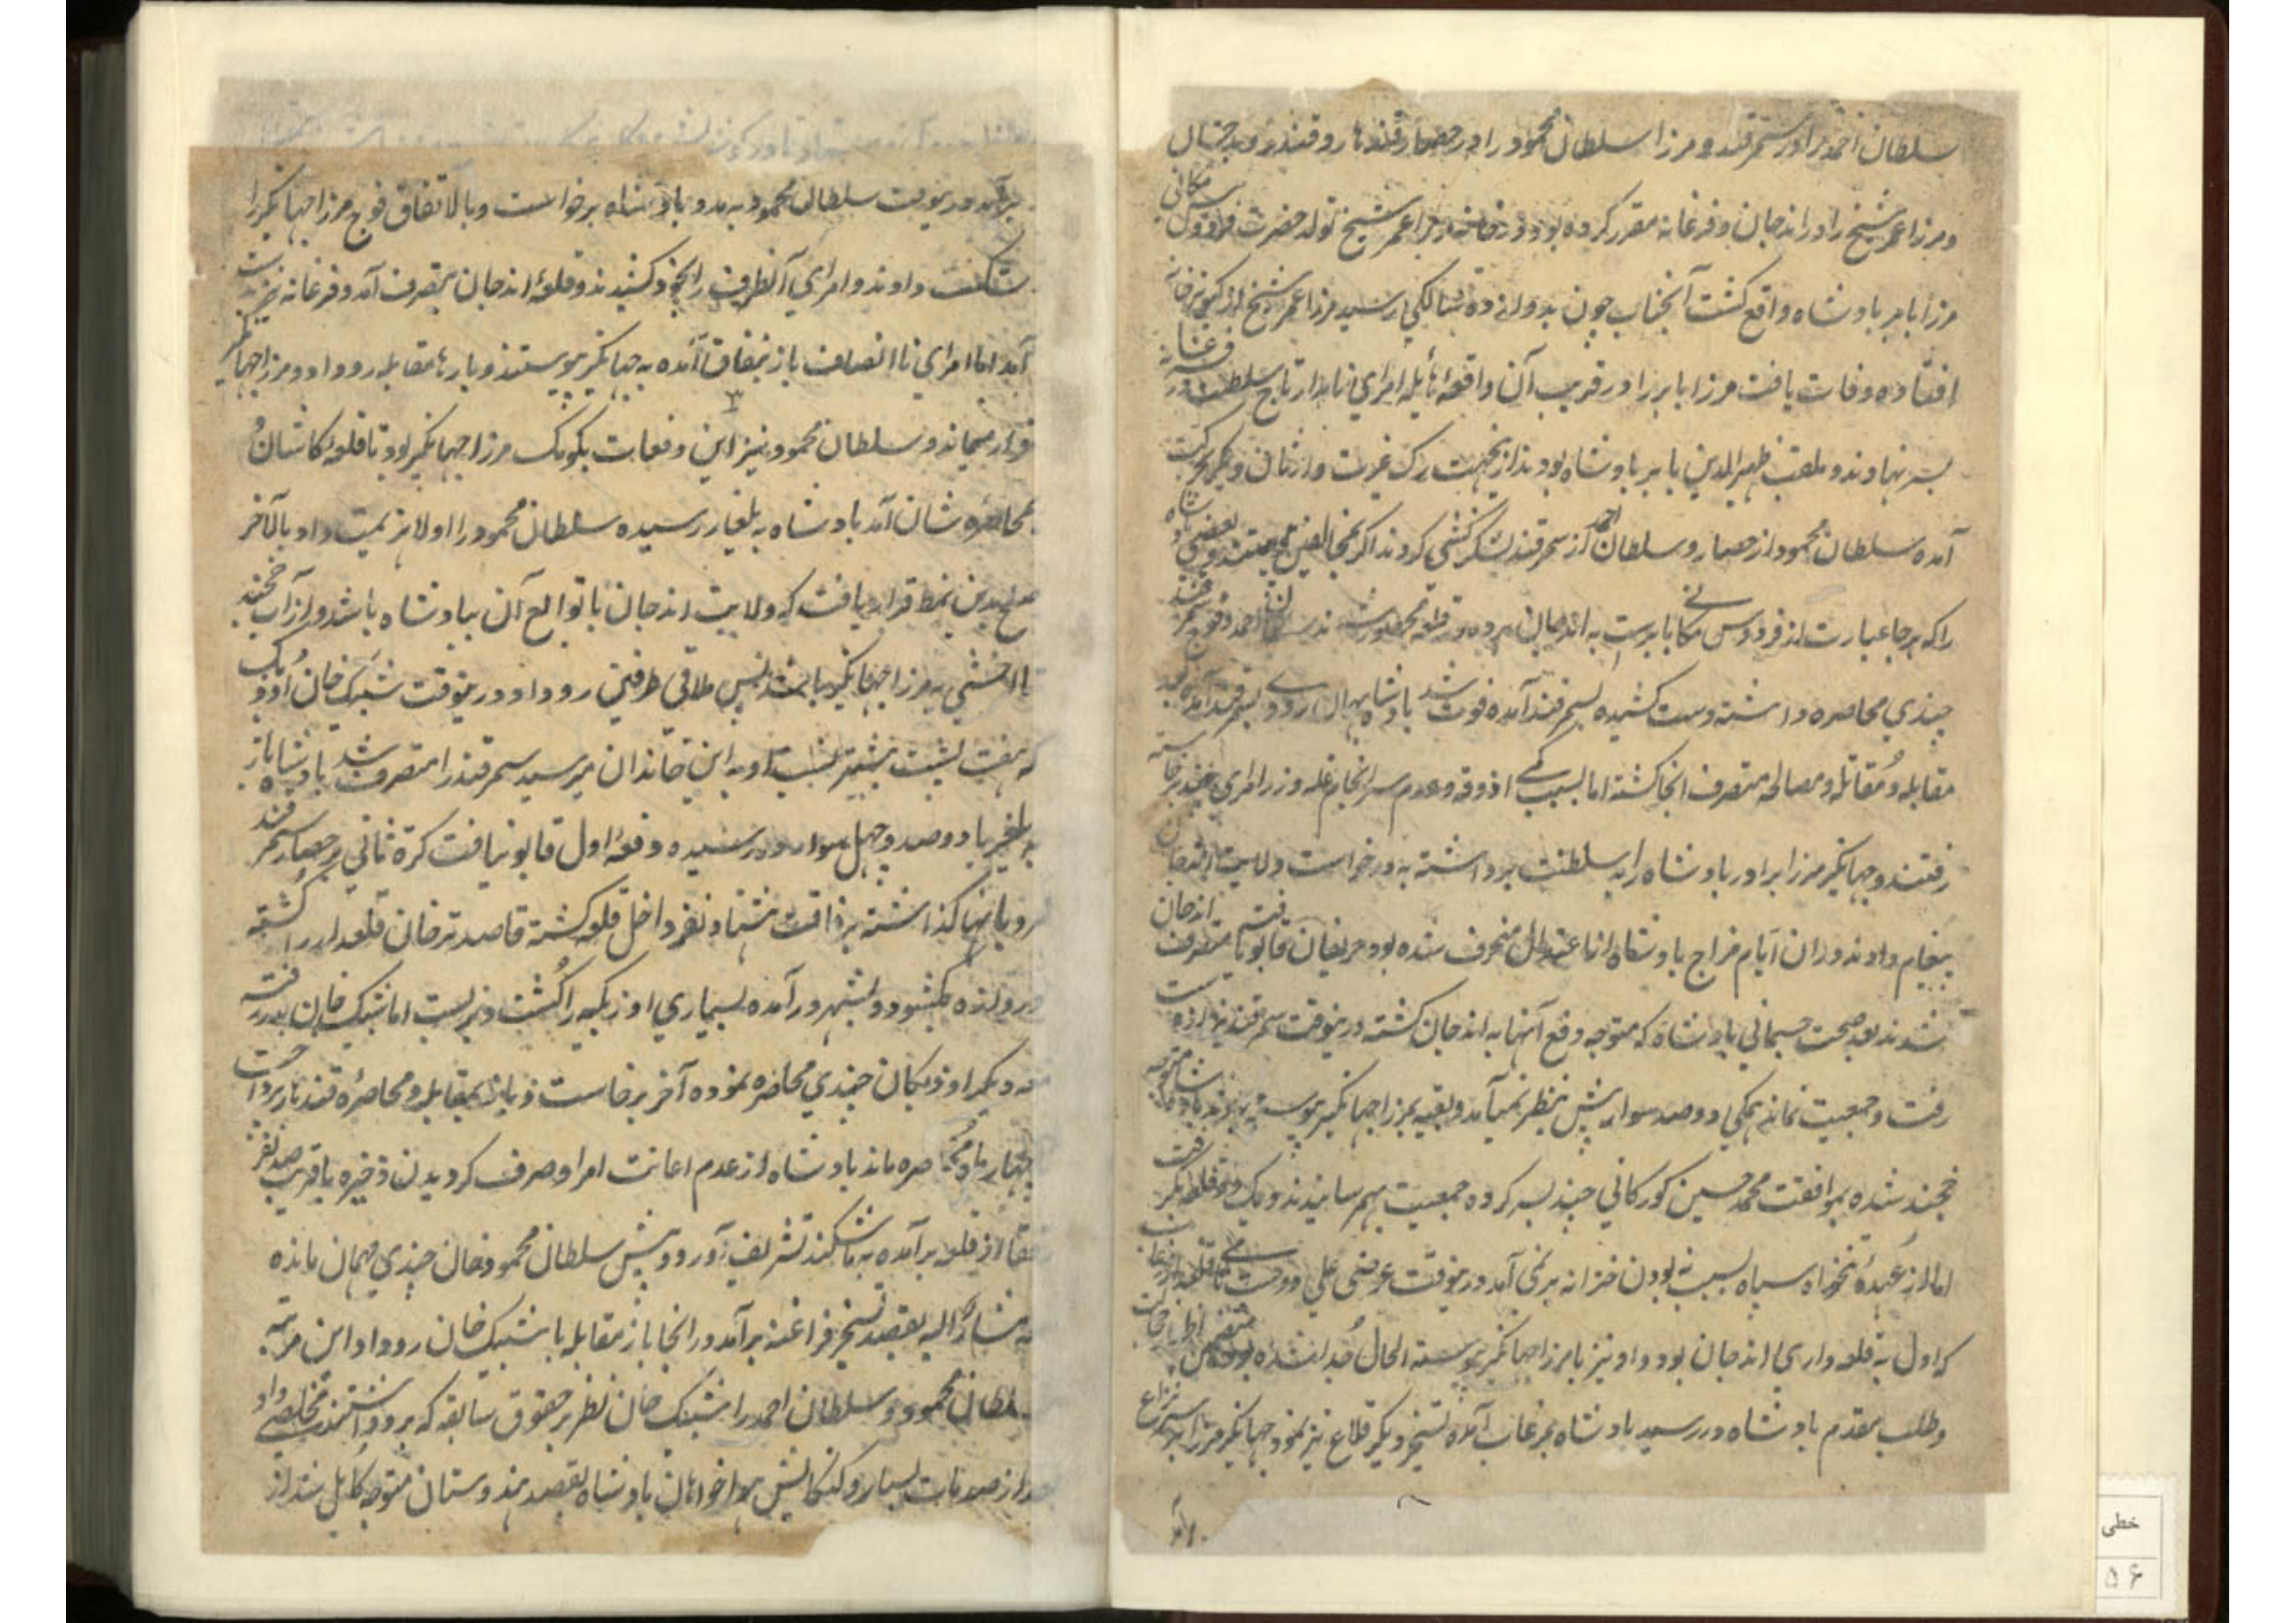 سلطان احمد را در سمرقند و مرزا سلطان محمود را در حصار و قندهار و قندز و بدخشان
و مرزا عمر شیخ را در اندجان و فرغانه مقرر کرده بود در فرغانه از مرزا عمر شیخ تولد حضرت فردوس مکانی
مرزا بابر بادشاه واقع گشت آنجناب چون بدوازده سالگی رسید مرزا عمر شیخ از کبوترخانه
افتاده وفات یافت مرزا بابر را در قریب آن واقعهٔ هایله امرای نامدار تاج سلطنت فرغانه بر
سر نهادند و ملقب ظهیر الدین بابر بادشاه بودند ازینجهت رگ غیرت وارثان دیگر بحرکت
آمده سلطان محمود از حصار و سلطان احمد از سمرقند لشکر کشی کردند اکثر بمخالفین پیوستند و بعضی بادشاه
را که هر جا عبارت از فردوس مکانی بابرست به اندجان برده در قلعه محصور شدند سلطان احمد در قرب سمرقند
چندی محاصره داشته دست کشیده بسمرقند آمده فوت شد بادشاه بهمان روی بسمرقند آمده بعد
مقابله و مقاتله و مصالحه متصرف انجا گشته اما بسبب کمی اذوقه و عدم سرانجام غله و زر امرای چند برخاسته
رفتند و جهانگیر مرزا برادر بادشاه را به سلطنت برداشته به درخواست ولایت اندجان
پیغام دادند در ان ایام مزاج بادشاه از اعتدال منحرف شده بود حریفان قابو یافته متصرف اندجان
شدند بعد صحت جسمانی بادشاه که متوجه دفع آنها به اندجان گشته درینوقت سمرقند نیز از دست
رفت و جمعیت نماند همگی دو صد سوار پیش بنظر نمی آمد و بقیه بمرزا جهانگیر پیوسته بودند بادشاه متوجه
خجند شده بموافقت محمد حسین کورکانی چند بسر کرده جمعیت بهم رسانیدند و یک دو قلعه بگرفت
اما از عهدهٔ تنخواه سپاه بسبب نبودن خزانه بر نمی آمد درینوقت عرضی علی دوست
که اول به قلعه داری اندجان بود و او نیز با مرزا جهانگیر پیوسته الحال جدا شده بود متضمن اظهار
و طلب مقدم بادشاه در رسید بادشاه بمرغاب آمده تسخیر دیگر قلاع نیز نمود جهانگیر مرزا بر سر نزاع
بر آمد
بر آمد درینوقت سلطان محمود به مدد بادشاه برخواست و بالاتفاق فوج مرزا جهانگیر را
شکست دادند و امرای آنطرف را بخود کشیدند و قلعهٔ اندجان بتصرف آمد و فرغانه نیز بدست
آمد اما امرای ناانصاف باز بنفاق آمده به جهانگیر پیوستند و بارها مقابله رو داد و مرزا جهانگیر
فرار مینماند و سلطان محمود نیز این دفعات بکومک مرزا جهانگیر بود تا قلعهٔ کاشان
محاصرهٔ شان آمد بادشاه به یلغار رسیده سلطان محمود را اولا هزیمت داد بالآخر
صلح بدین نمط قرار یافت که ولایت اندجان با توابع آن ببادشاه باشد و از آب خجند
تا اخشی به مرزا جهانگیر باشد پس ملاقی طرفین رو داد و درینوقت شیبک خان اوزبک
که هفت پشت بیشتر نسبت او به این خاندان میرسید سمرقند را متصرف شد بادشاه باز
به یلغر با دو صد و چهل سوار در رسیده دفعهٔ اول قابو نیافت کرة ثانی بر حصار سمرقند
نردبانها گذاشته برفاقت هشتاد نفر داخل قلعه گشته قاصد ترخان قلعدار را کشته
دروازه بکشود و بشهر در آمده بسیاری اوزبکیه را کشت و بربست اما شیبک خان بدر رفته
دیگر اوزبکان چندی محاصره نموده آخر برخاست و باز بمقابله و محاصره قندهار پرداخت
چهار ماه محاصره ماند بادشاه از عدم اعانت امرا و صرف گردیدن ذخیره با قریب صد نفر
از قلعه برآمده به تاشکند تشریف آورد و پیش سلطان محمود خان چندی مهمان مانده
مشارٌ الیه بقصد تسخیر فراغنه برآمد در انجا باز مقابله با شیبک خان رو داد این مرتبه
سلطان محمود و سلطان احمد را شیبک خان نظر بر حقوق سابقه که بر وو داشتند مخلصی داد
بعد از صدمات بسیار و کنکاش هوا خواهان بادشاه بقصد هندوستان متوجه کابل شد از
خطی
۵۶